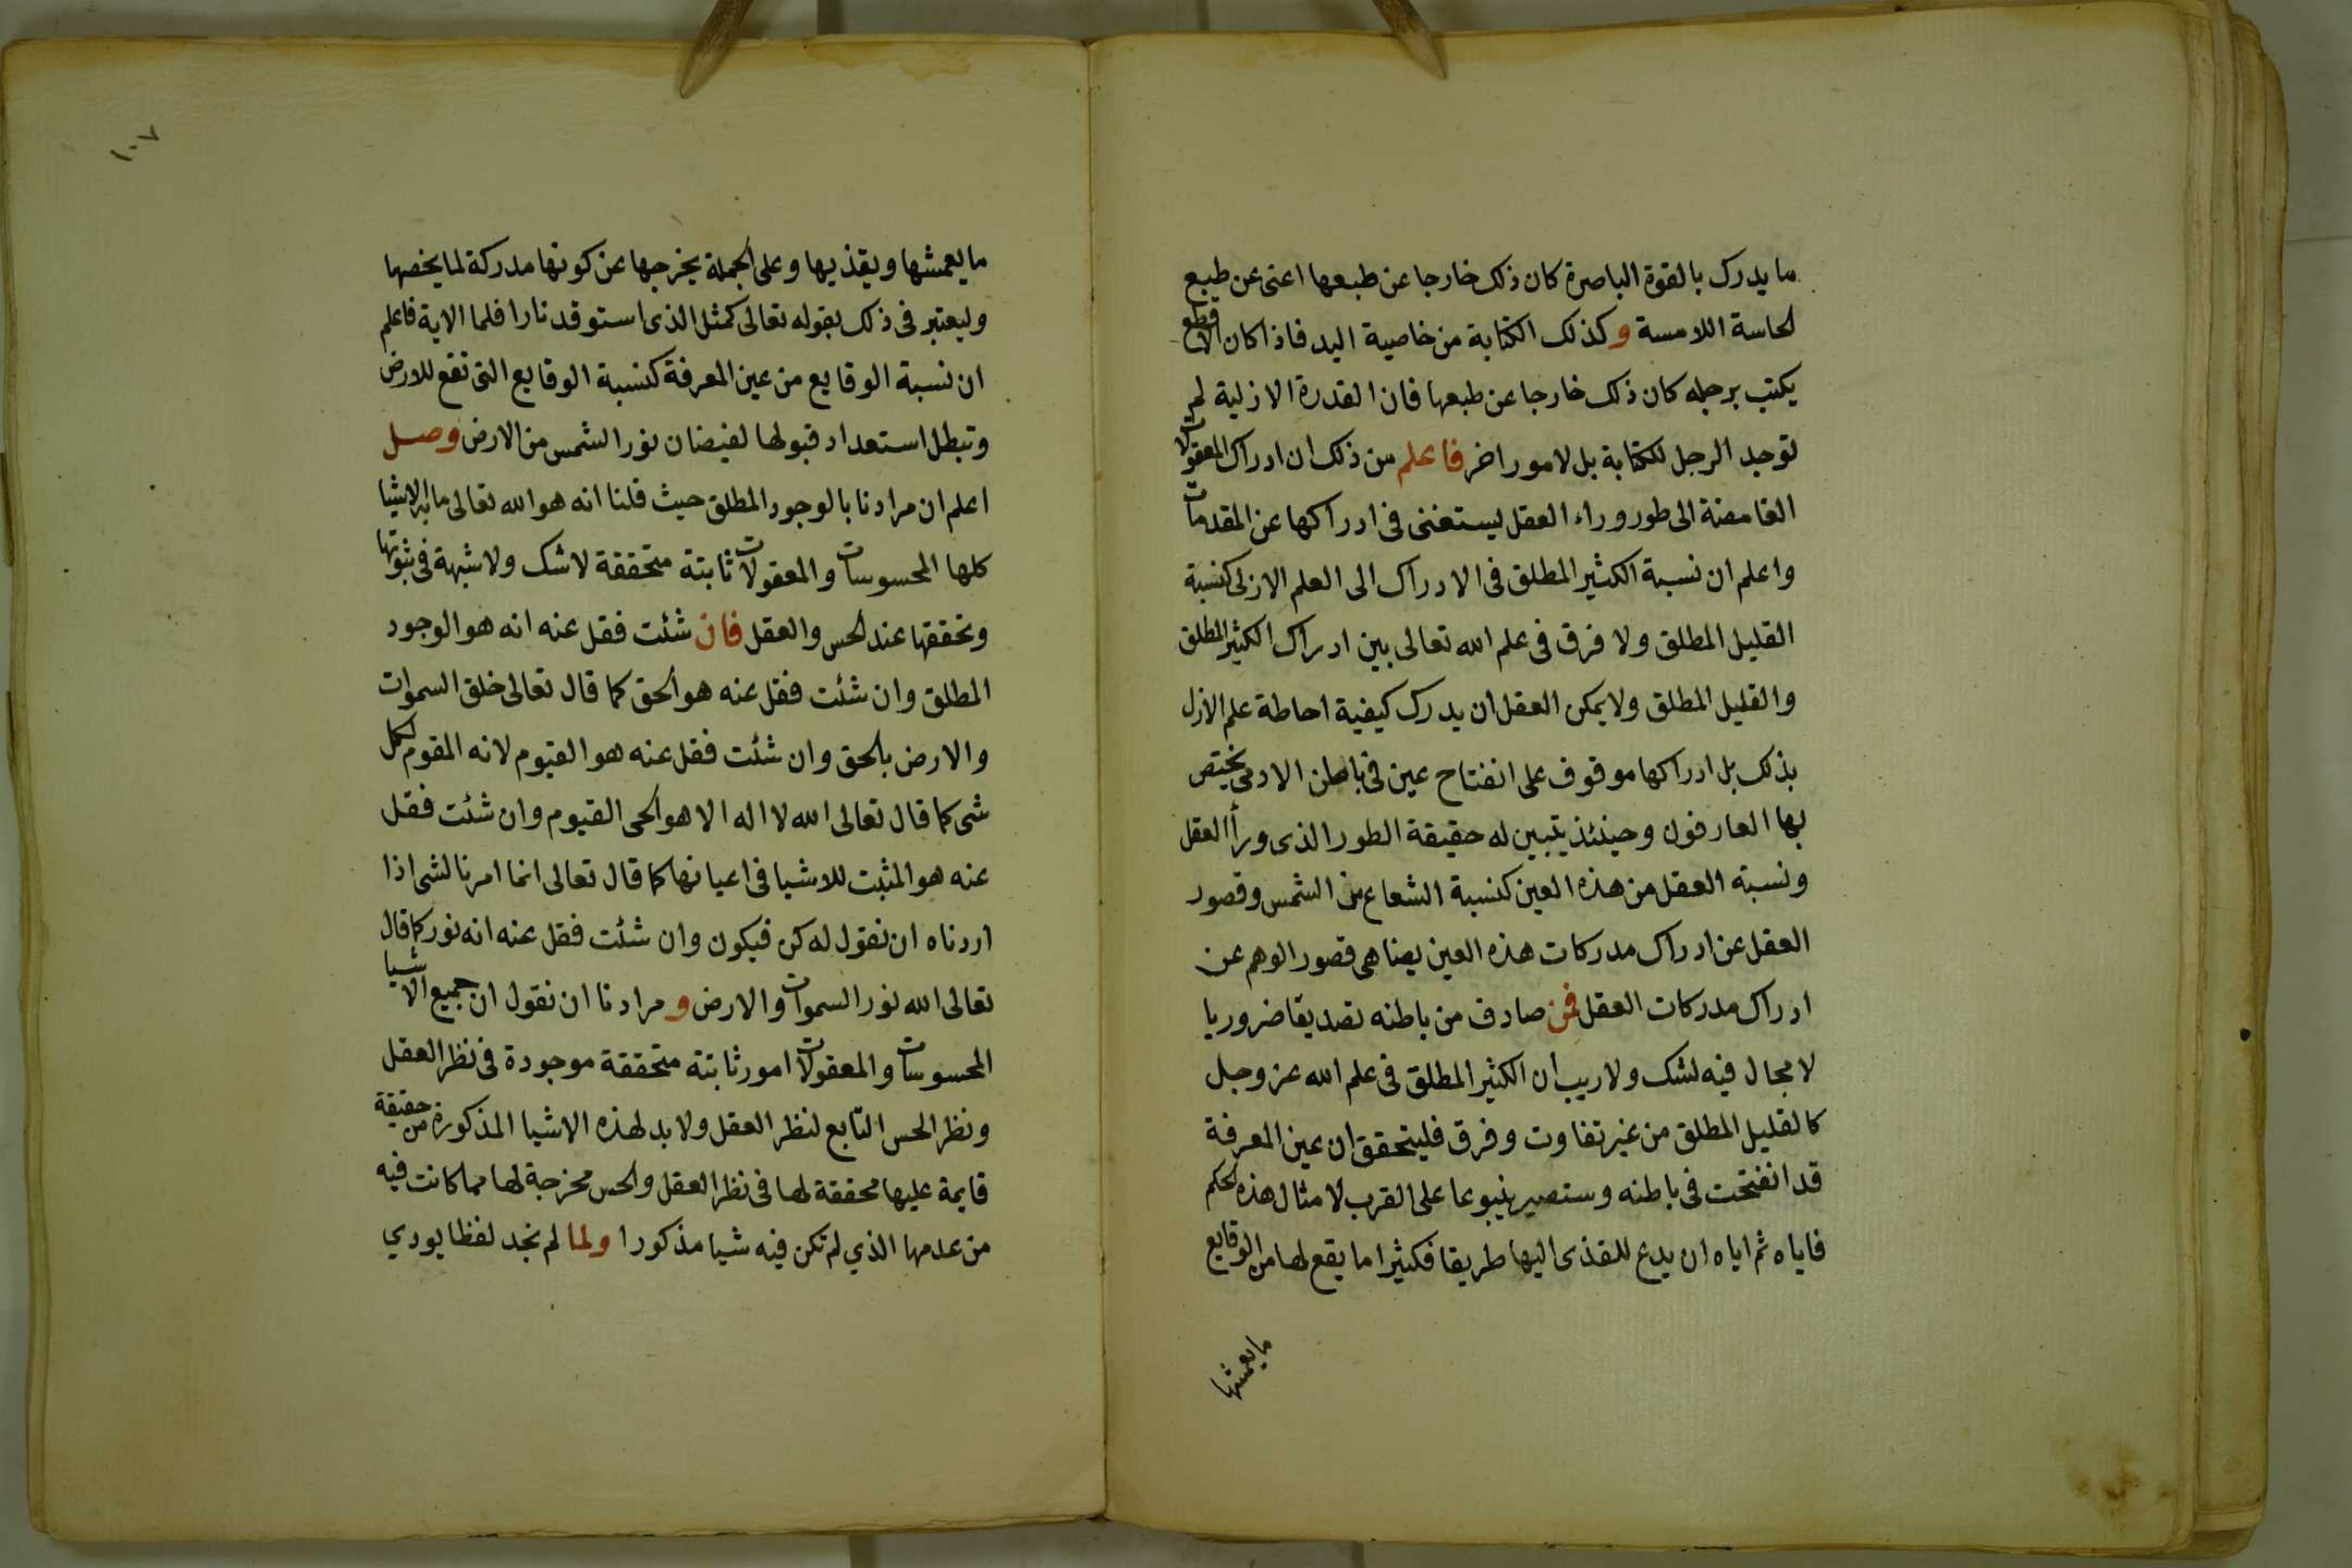 ما يدرك بالقوة الباصرة كان ذلك خارجا عن طبعها اعنى عن طبع
الحاسة اللامسة وكذلك الكتابة من خاصية اليد فاذا كان الاقطع
يكتب برجله كان ذلك خارجا عن طبعها فان القدرة الازلية لم
توجد الرجل للكتابة بل لامور اخر فاعلم من ذلك ان ادراك المعقولات
الغامضة الى طور وراء العقل يستغنى فى ادراكها عن المقدمات
واعلم ان نسبة الكثير المطلق فى الادراك الى العلم الازلى كنسبة
القليل المطلق ولا فرق فى علم الله تعالى بين ادراك الكثير المطلق
والقليل المطلق ولا يمكن العقل ان يدرك كيفية احاطة علم الازل
بذلك بل ادراكها موقوف على انفتاح عين فى باطن الادمى يختص
بها العارفون وحينئذ يتبين له حقيقة الطور الذى ورأ العقل
ونسبة العقل من هذه العين كنسبة الشعاع من الشمس وقصور
العقل عن ادراك مدركات هذه العين يضاهى قصور الوهم عن
ادراك مدركات العقل فمن صادف من باطنه تصديقا ضروريا
لا مجال فيه لشك ولا ريب ان الكثير المطلق فى علم الله عز وجل
كالقليل المطلق من غير تفاوت وفرق فليتحقق ان عين المعرفة
قد انفتحت فى باطنه وستصير ينبوعا على القرب لامثال هذه الحكم
فاياه ثم اياه ان يدع للقذى اليها طريقا فكثيرا ما يقع لها من الوقايع
ما يعمشها
١٠٧
ما يعمشها ويقذيها وعلى الجملة يخرجها عن كونها مدركة لما يخصها
وليعتبر فى ذلك بقوله تعالى كمثل الذى استوقد نارا فلما الاية فاعلم
ان نسبة الوقايع من عين المعرفة كنسبة الوقايع التى تقع للارض
وتبطل استعداد قبولها لفيضان نور الشمس من الارض وصل
اعلم ان مرادنا بالوجود المطلق حيث قلنا انه هو الله تعالى ما به الاشيا
كلها المحسوسات والمعقولات ثابتة متحققة لا شك ولا شبهة فى ثبوتها
وتحققها عند الحس والعقل فان شئت فقل عنه انه هو الوجود
المطلق وان شئت فقل عنه هو الحق كما قال تعالى خلق السموات
والارض بالحق وان شئت فقل عنه هو القيوم لانه المقوم لكل
شى كما قال تعالى الله لا اله الا هو الحى القيوم وان شئت فقل
عنه هو المثبت للاشيا فى اعيانها كما قال تعالى انما امرنا لشى اذا
اردناه ان نقول له كن فيكون وان شئت فقل عنه انه نور كما قال
تعالى الله نور السموات والارض و مرادنا ان نقول ان جميع الاشيا
المحسوسات والمعقولات امور ثابتة متحققة موجودة فى نظر العقل
ونظر الحس التابع لنظر العقل ولا بد لهذه الاشيا المذكورة من حقيقة
قايمة عليها محققة لها فى نظر العقل والحس مخرجة لها مما كانت فيه
من عدمها الذي لم تكن فيه شيا مذكورا ولما لم نجد لفظا يودي